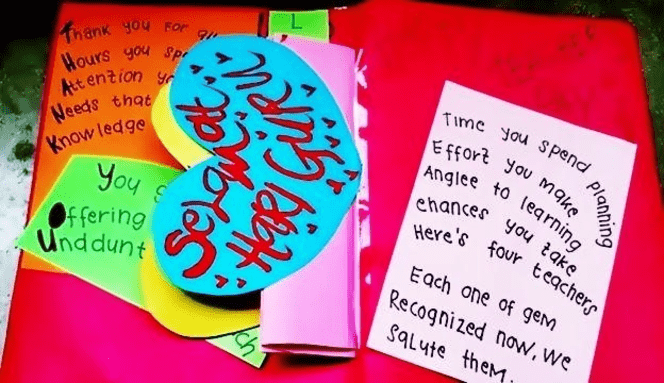 Thank you for
Hours you
Attention
Needs that
Knowledge
You
Offering
Unddunt
L
Selamat
Hari Guru
ch
Time you spend planning
Effort you make
Anglee to learning
chances you take
Here's four teachers
Each one of gem
Recognized now, we
Salute them.